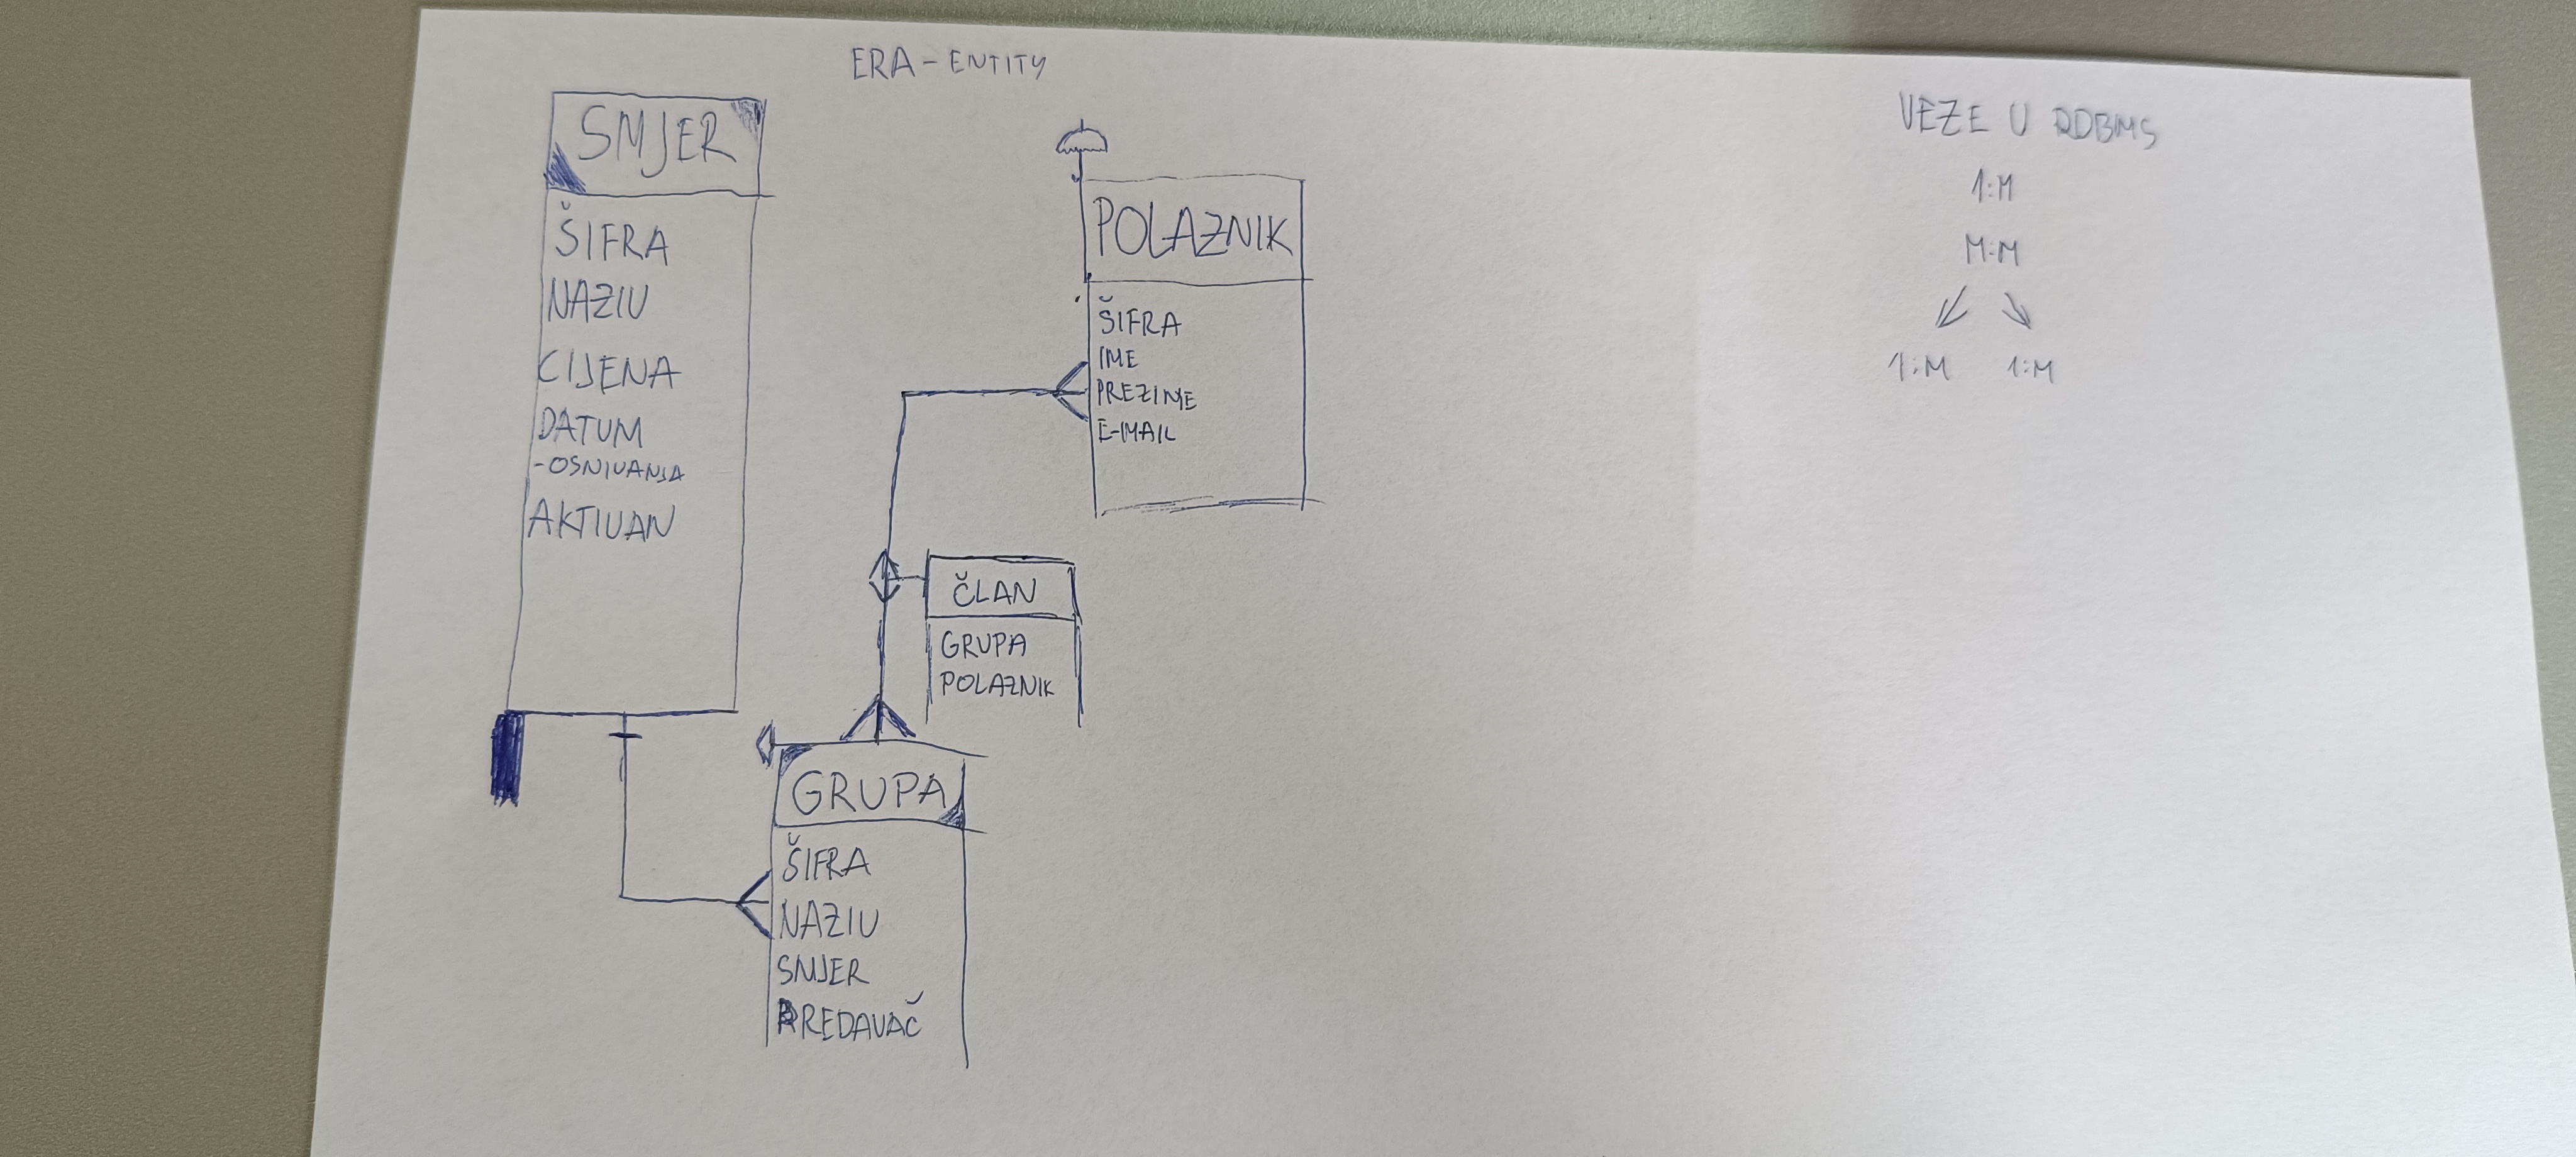 ERA - ENTITY
SMJER
ŠIFRA
NAZIV
CIJENA
DATUM
-OSNIVANJA
AKTIVAN
POLAZNIK
ŠIFRA
IME
PREZIME
E-MAIL
ČLAN
GRUPA
POLAZNIK
GRUPA
ŠIFRA
NAZIV
SMJER
PREDAVAČ
VEZE U RDBMS
1:M
M:M
1:M 1:M